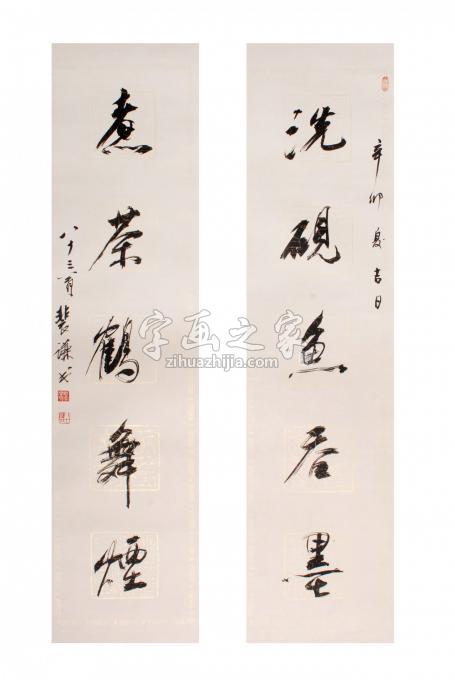 辛卯夏吉日
洗硯魚吞墨
煮茶鶴舞煙
八十三首裴謙書
字画之家
zihuazhijia.com